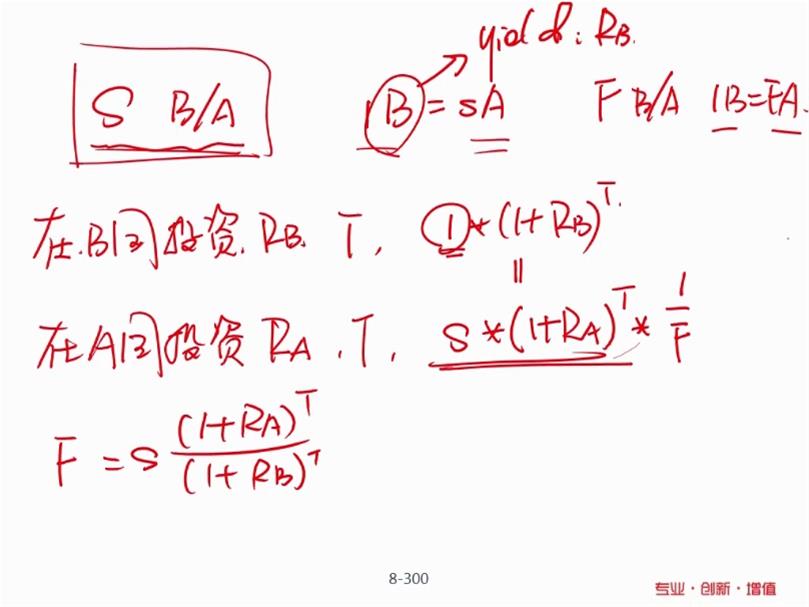 yield: RB.
S B/A 1B=SA F B/A 1B=FA.
在B国投资 RB. T, 1*(1+RB)^T.
=
在A国投资 RA, T, S*(1+RA)^T * 1/F
F = S (1+RA)^T/(1+RB)^T
8-300
专业·创新·增值